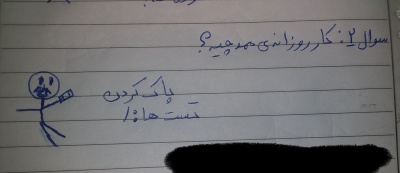 سوال ۲: کار روزانه‌ی ممد چیه؟
پاک کردن
تست ها:/